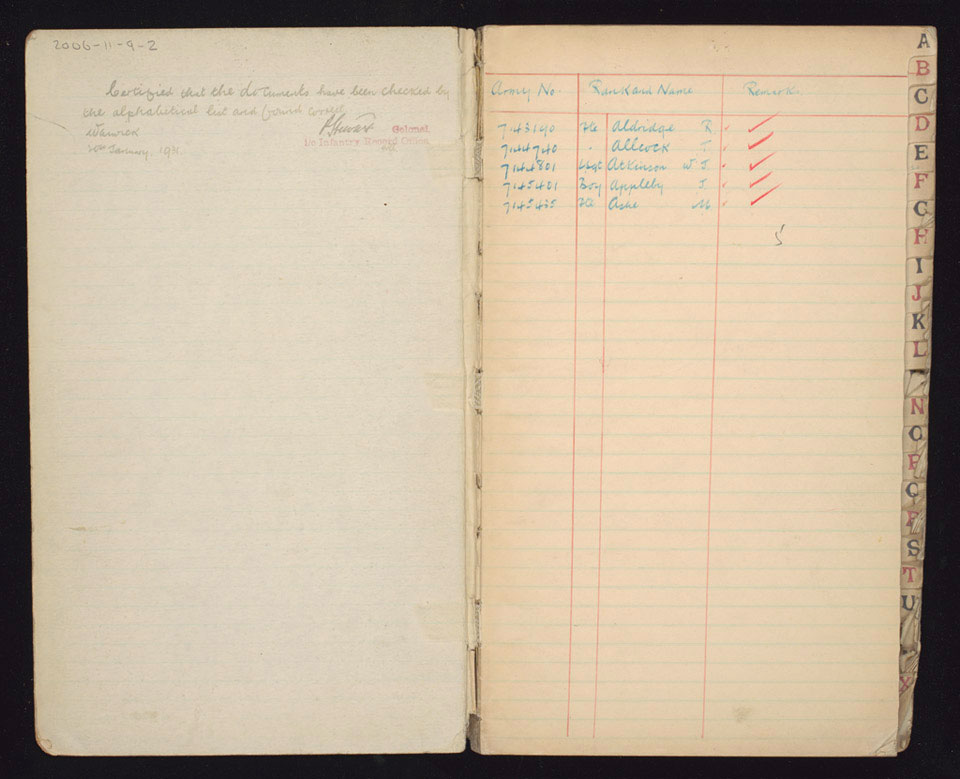 2006-11-9-2
Certified that the documents have been checked by
the alphabetical list and found correct
Warwick Colonel
10th January. 193 i/c Infantry Record Office
Army No. Rank and Name Remarks
7143190 Pte Aldridge R.
7144740 " Allcock T.
7144801 L/Sgt Atkinson W. J.
7145421 Boy Appleby J.
7145435 Pte Ashe M
5
A
B
C
D
E
F
G
H
I
J
K
L
N
O
P
Q
R
S
T
U
X